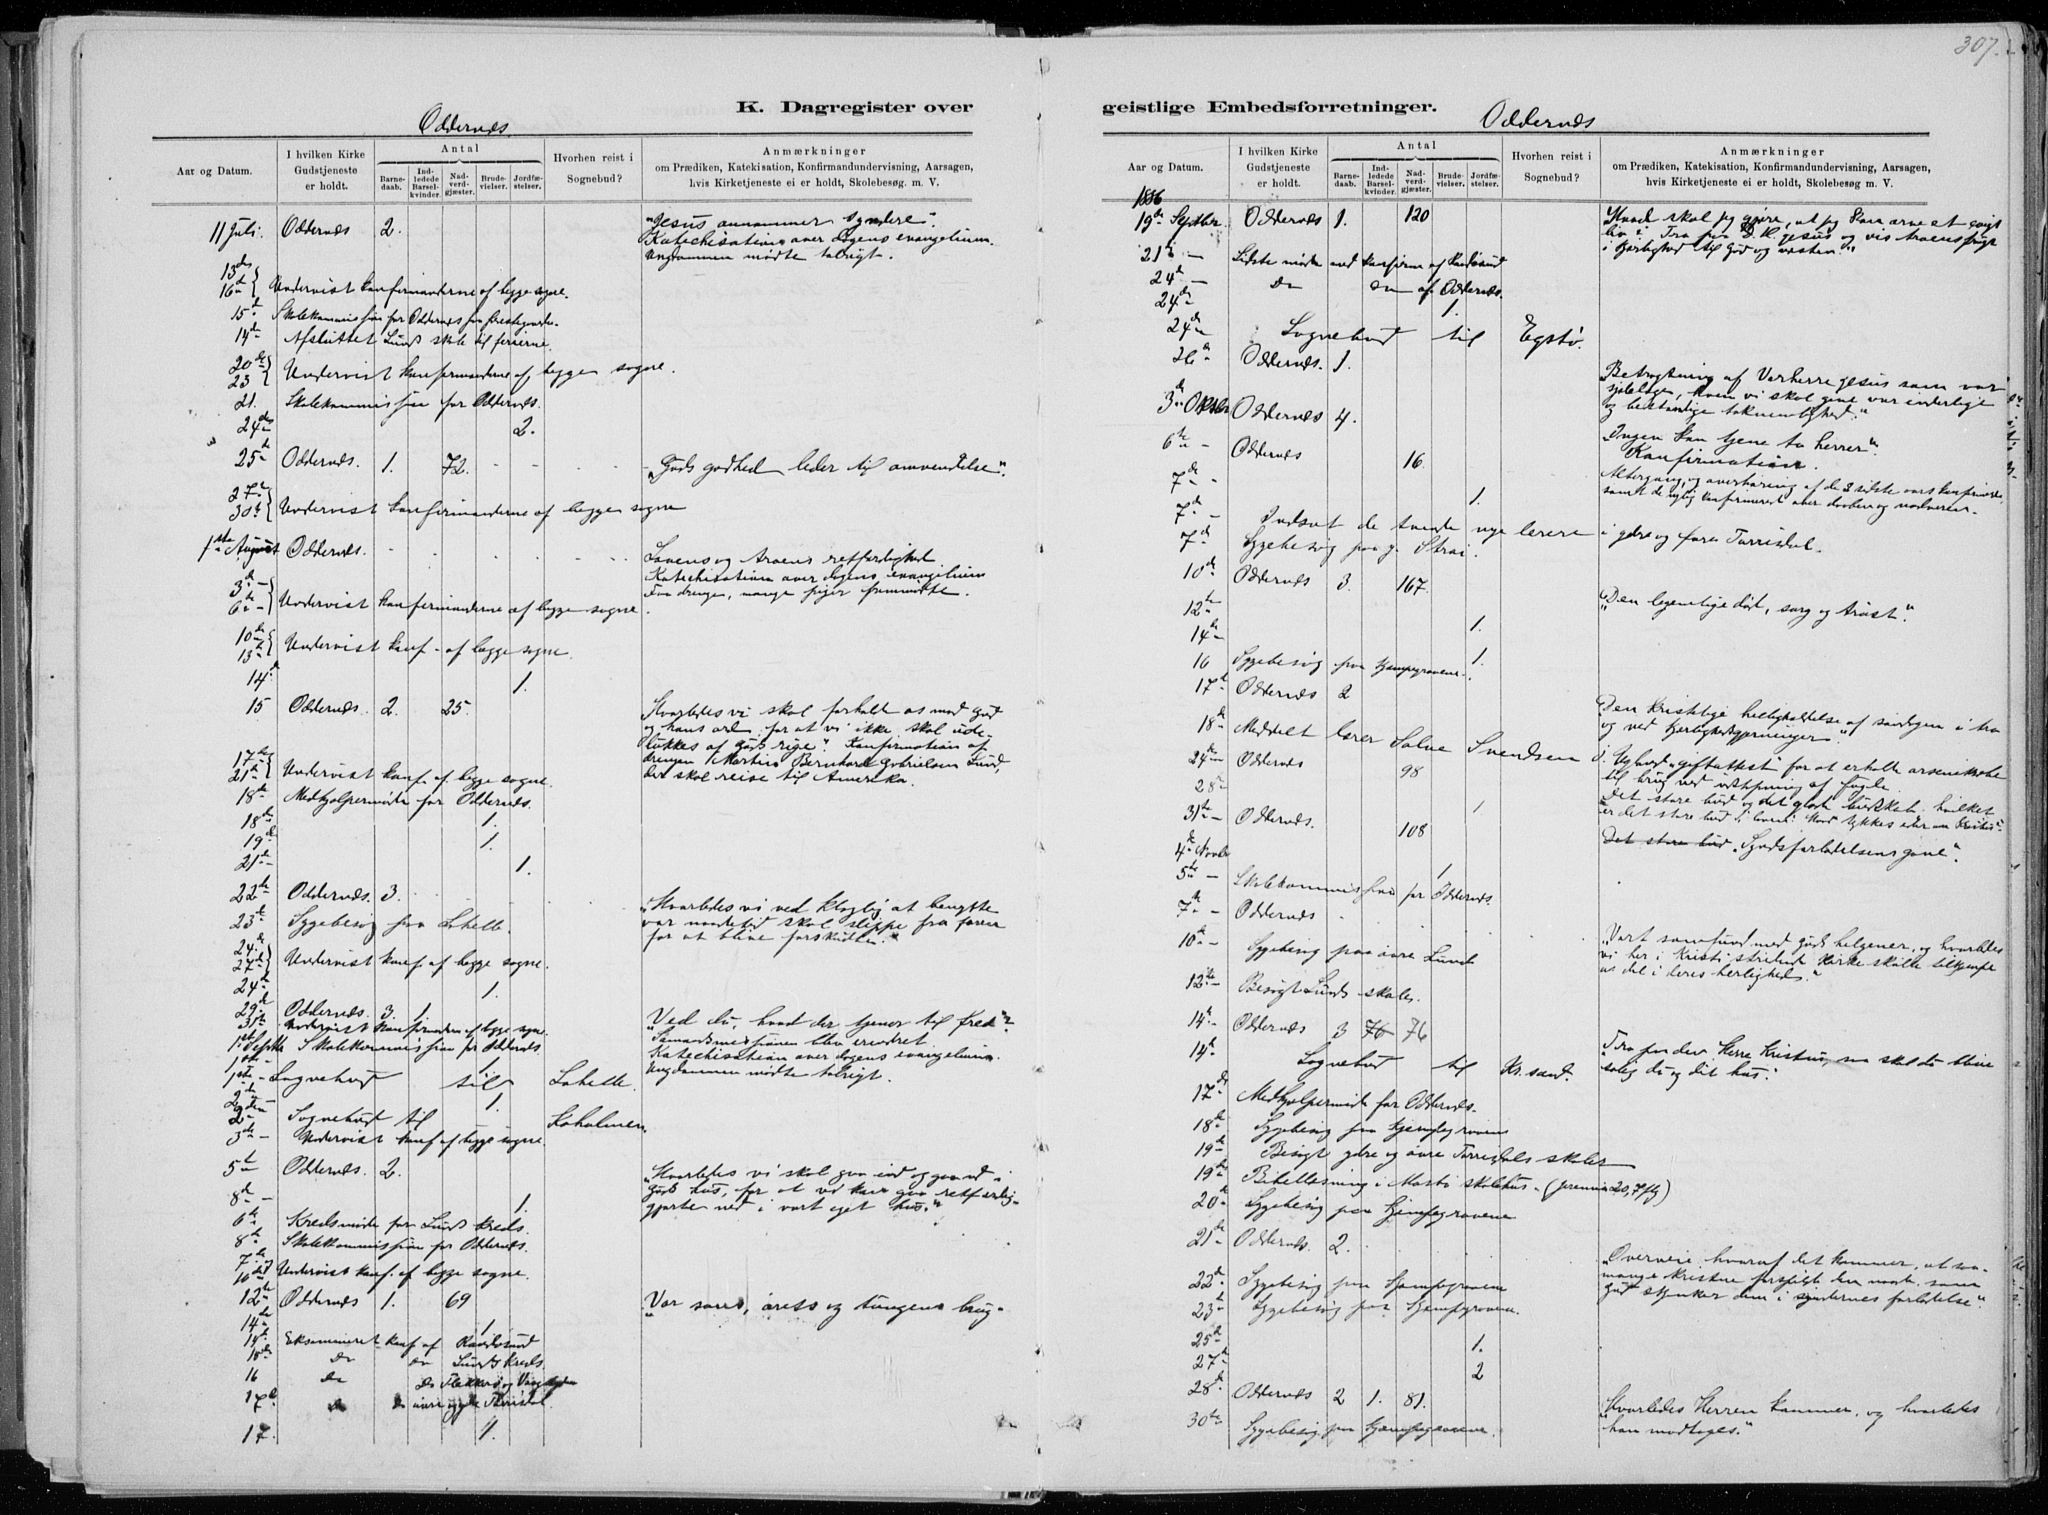 307.
K. Dagregister over
Oddernes
Aar og Datum.
I hvilken Kirke Gudstjeneste er holdt.
Antal
Barne-daab.
Ind-ledede Barsel-kvinder.
Nad-verd-gjæster.
Brude-vielser.
Jordfæ-stelser.
Hvorhen reist i Sognebud?
Anmærkninger
om Prædiken, Katekisation, Konfirmandundervisning, Aarsagen,
hvis Kirketjeneste ei er holdt, Skolebesøg m. V.
11 Juli. Oddernes 2. "Jesus annammer syndere".
Katechisation over dagens evangelium.
Ungdommen mødte talrigt.
13de
16de Undervist konfirmanderne af begge sogne.
15de Skolekommission for Oddernes paa prestegaarden
14de Afsluttet Lunds skole til ferierne.
20de
23 Undervist konfirmanderne af begge sogne.
21. Skolekommission for Oddernes.
24de 2.
25de Oddernes. 1. 72. "Guds godhed leder til omvendelse".
27de
30te Undervist konfirmanderne af begge sogne
1ste August Oddernes. Lovens og troens retfærdighed
Katechisation over dagens evangelium
Faa drenge, mange piger fremmødte.
3de
6te Undervist konfirmanderne af begge sogne.
10de
13de Undervist konf. af begge sogne.
14de 1.
15 Oddernes. 2. 25. Hvorledes vi skal forholde os mod Gud
og hans ord, for at vi ikke skal ude-
lukkes af Guds rige". Konfirmation af
drengen Martin Bernhard Gabrielsen Lund,
der skal reise til Amerika.
17de
21de Undervist konf. af begge sogne.
18de Medhjælpermøde for Oddernes.
18de 1.
19de 1.
21de 1.
22de Oddernes. 3. "Hvorledes vi ved klogelig at benytte
vor naadetid skal slippe fra faren
for at blive forskudte."
23de Sygebesøg paa Lahelle.
24de
27de Undervist konf. af begge sogne.
24de 1.
29de Oddernes. 3. 1. "Ved du, hvad der tjener til fred"?
31te Undervist konfirmanderne af begge sogne.
Sømandsmissionen blev erindret.
1ste Septbr Skolekommission for Oddernes
Katechisation over dagens evangelium.
1ste - 1.
Ungdommen mødte talrigt.
1ste - Sognebud til Lahelle.
2den 1.
2den Sognebud til Kaholmen.
3de - Undervist konf. af begge sogne.
5te Oddernes. 2. "Hvorledes vi skal gaa ind og gaa ud i
Guds hus, for at vi kan gaa retfærdig-
gjorte ned i vort eget hus."
8de - 1.
6te Kredsmøde for Lunds kreds.
8de Skolekommission for Oddernes.
7de
10de Undervist konf. af begge sogne.
12te Oddernes 1. 69 "Vor sans, ørets og tungens brug"
14de 1
14de Eksamineret konf. af Randøsund
15de Do do Lunds kreds.
16 do do Flekkerø og Vaagsbygden
17de do do øvre og ydre Torrisdal.
17. 1.
geistlige Embedsforretninger.
Oddernes
Aar og Datum.
I hvilken Kirke Gudstjeneste er holdt.
Antal
Barne-daab.
Ind-ledede Barsel-kvinder.
Nad-verd-gjæster.
Brude-vielser.
Jordfæ-stelser.
Hvorhen reist i Sognebud?
Anmærkninger
om Prædiken, Katekisation, Konfirmandundervisning, Aarsagen,
hvis Kirketjeneste ei er holdt, Skolebesøg m. V.
1886
19de Septbr Oddernes 1. 120 "Hvad skal jeg gjøre, at jeg kan arve et evigt
liv"? Tro paa D. H. Jesus og vis troens frugt
i kjærlighed til Gud og næsten."
21de - Sidste møde med konfirm. af Randøsund
24de - Do do af Oddernes.
24de 1.
24de Sognebud til Egstø.
26de Oddernes. 1. Betragtning af Vorherre Jesus som vor
sjælelæge, hvem vi skal give vor inderlige
og bestandige taknemlighed."
3de Oktbr Oddernes 4. "Ingen kan tjene to herrer".
Konfirmation.
6te - Oddernes 16. Altergang, og overhøring af de 3 sidste aars konfirmerede
samt de nylig konfirmerede over daaben og nadveren.
7de - 1.
7de - Indsat de tvende nye lærere i ydre og øvre Torrisdal.
7de Sygebesøg paa y. Strai.
10de Oddernes 3. 167. "Den legemlige død, sorg og trøst".
12te 1.
14de 1.
16 Sygebesøg paa Kjempegrovene.
17de Oddernes 2 Den kristelige helligholdelse af søndagen i tro
og ved kjærlighedsgjerninger."
18de Meddelt lærer Salve Svendsen
24de Oddernes 98 til brug ved udstopning af fugle.
28de 1
Det store bud og det glade budskab. hvilket
er det store bud i loven? Hvad tykkes eder om Kristus?
31te Oddernes. 108 Det store bud "Syndsforladelsens gave".
4de Novbr 1
5te - Skolekommission for Oddernes.
7de - Oddernes "Vort samfund med Guds helgener, og hvorledes
vi her i Kristi stridende kirke skulle tilkjæmpe
os del i deres herlighed."
10de - Sygebesøg paa øvre Lund
12te - Besøgt Lunds skoler.
14de - Oddernes 3 76 76 "Tro paa den Herre Kristus, saa skal du blive
salig du og dit hus."
14de Sognebud til Kr.sand.
17de Medhjælpermøde for Oddernes.
18de Sygebesøg paa Kjempegrovene
19de Besøgt ydre og øvre Torrisdals skoler
19de Bibellæsning i Mosby skolehus. (Jeremia 20, 7 flg)
20de Sygebesøg paa Kjempegrovene
21de Oddernes. 2. "Overveie, hvoraf det kommer, at saa
mange kristne forspilde den naade, som
Gud skjenker dem i syndernes forladelse".
22de Sygebesøg paa Kjempegrovene
23de Sygebesøg paa Kjempegrovene.
25de 1.
27de 2
28de Oddernes 2 1. 81. "Hvorledes Herren kommer, og hvorledes
han modtages."
30te Sygebesøg paa Kjæmpegrovene.